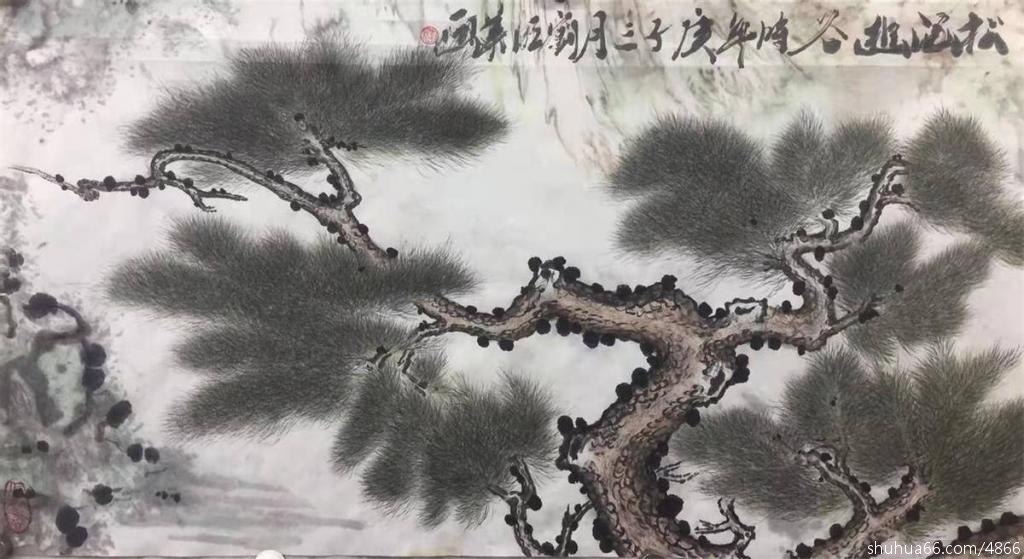 松幽谷時年庚子三月劉英画
shuhua66.com/4866